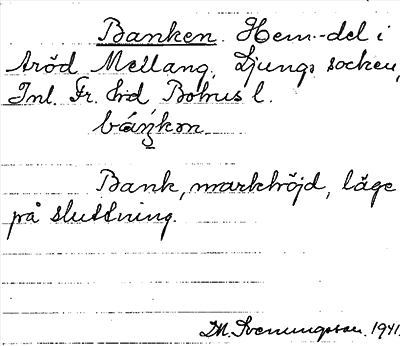 Banken. Hem-del i
Aröd Mellang. Ljungs socken,
Inl. Fr. hd Bohus l.
Bank, markhöjd, läge
på sluttning.
M. Svenungsson. 1941.